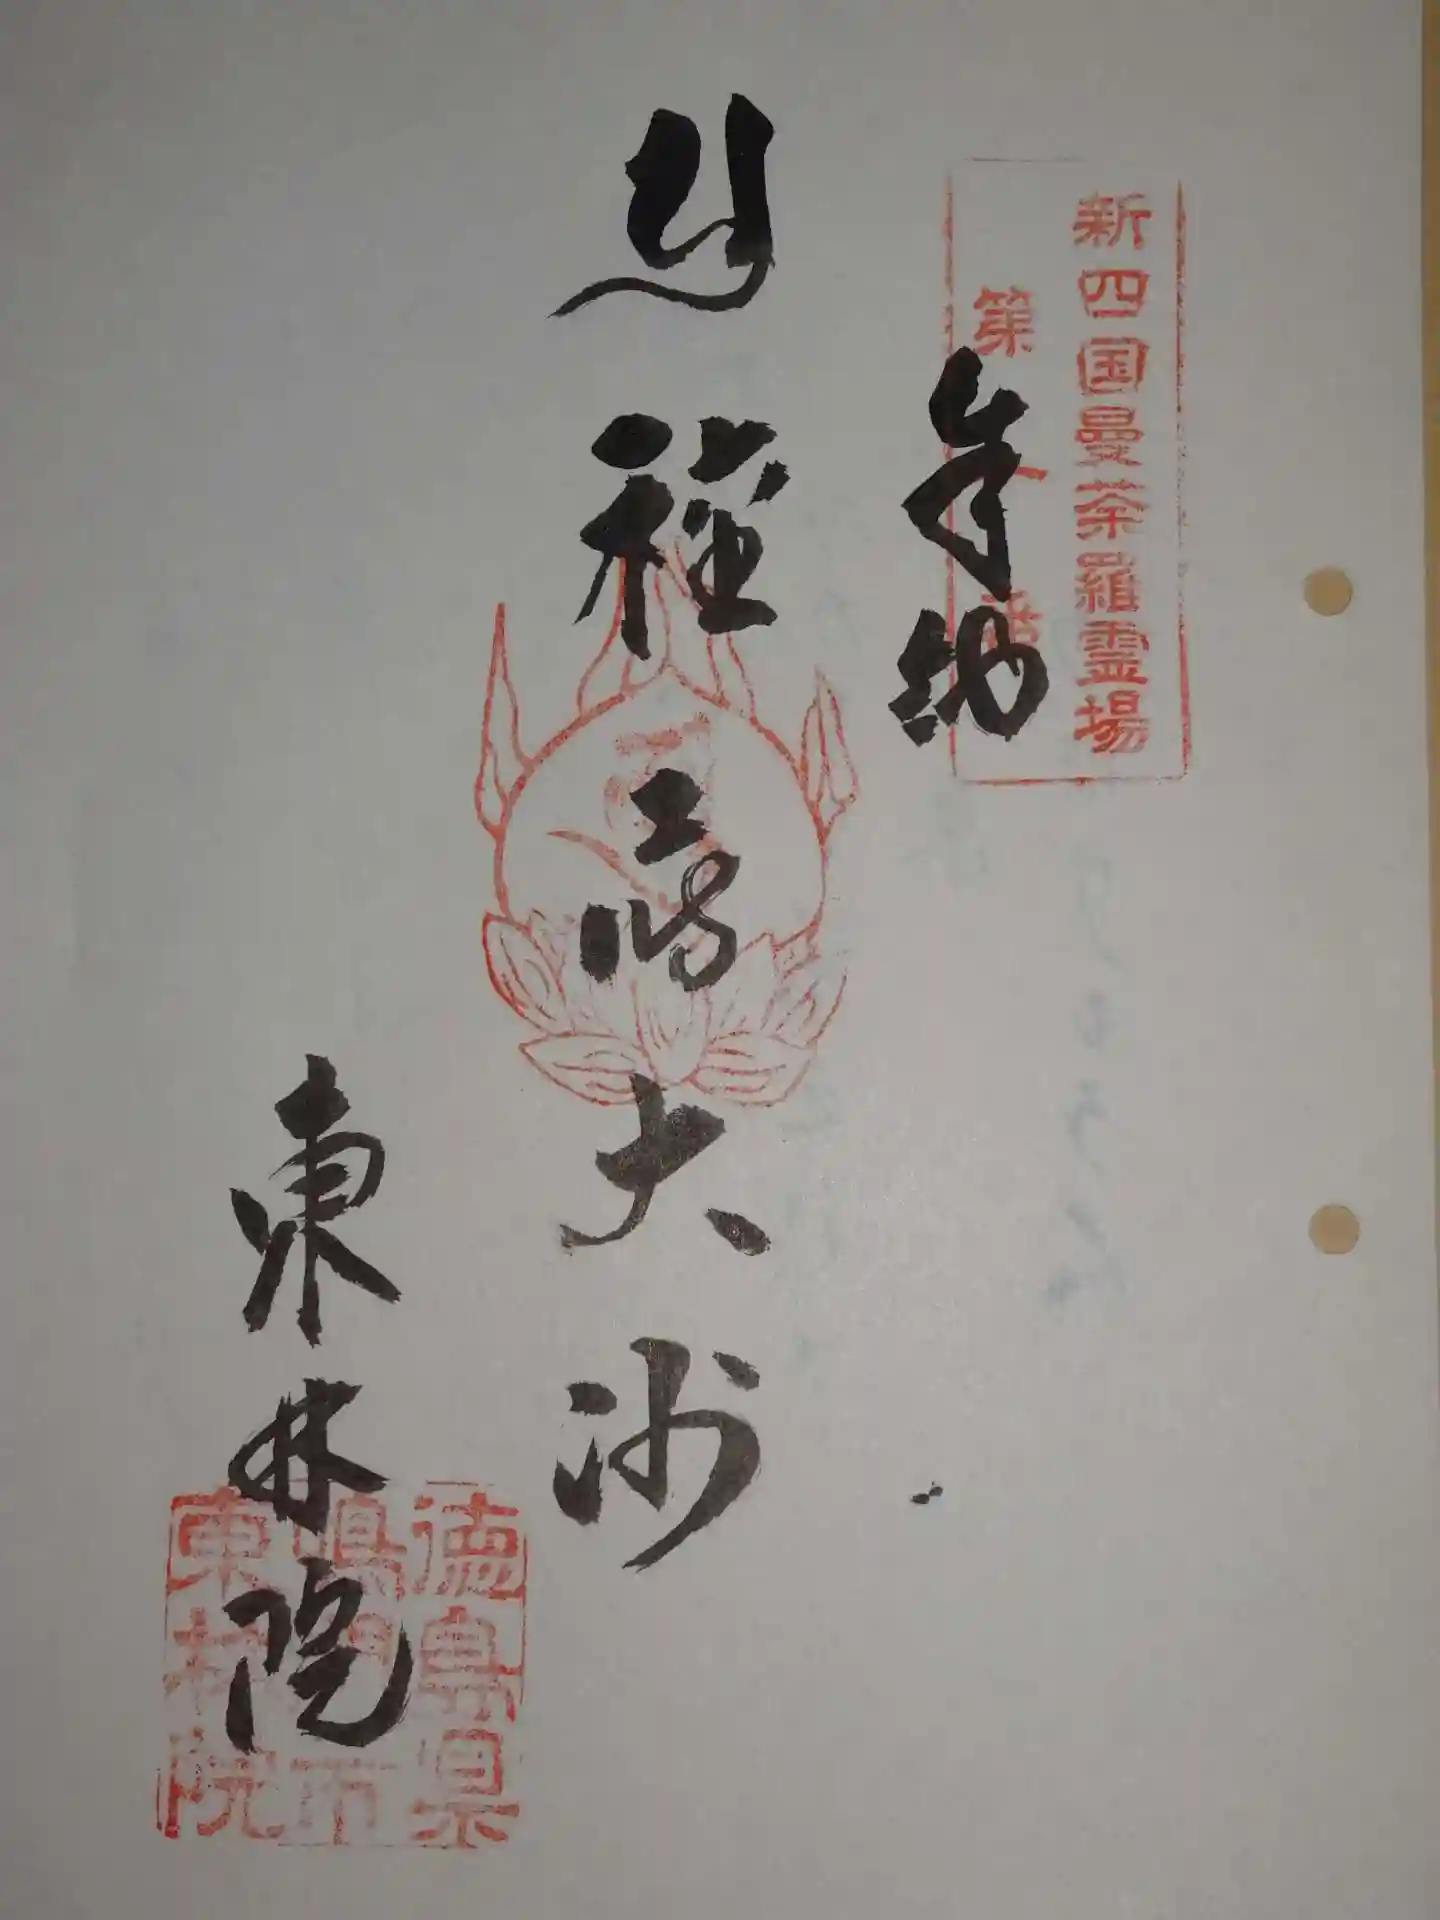 新四国曼荼羅霊場
第一番
奉納
種蒔大师
東林院
徳島県
鳴門市
東林院